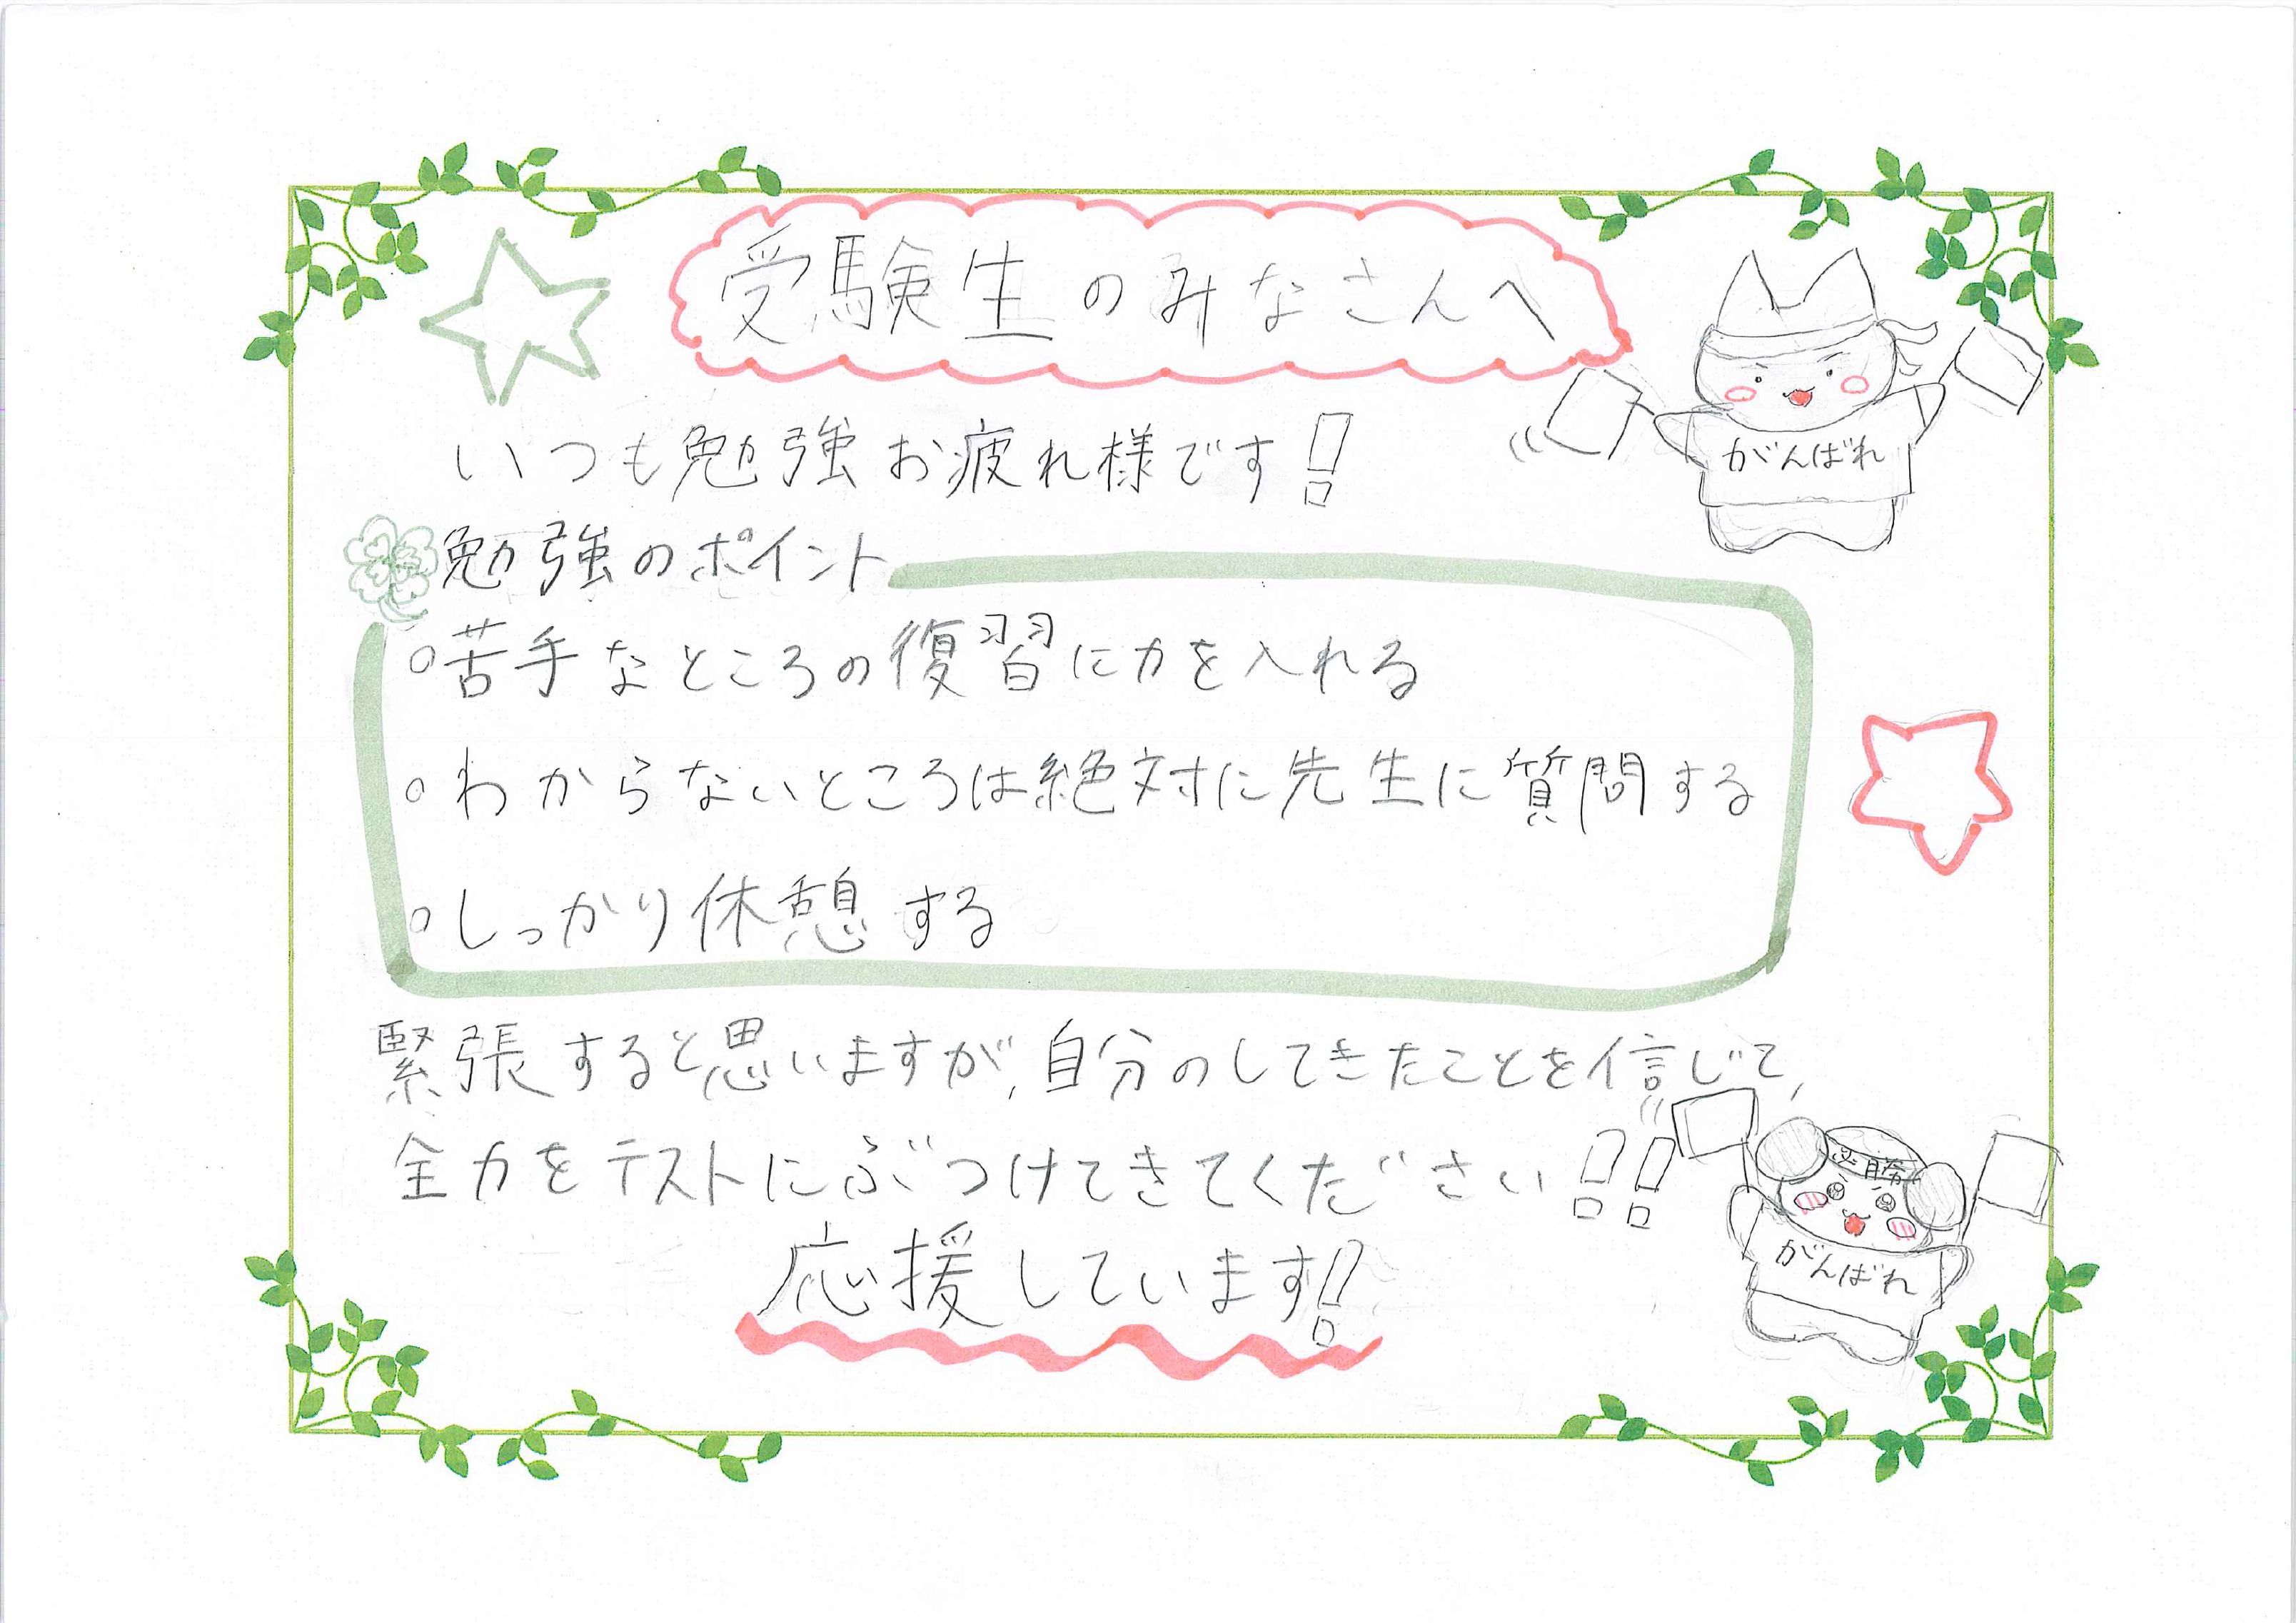 受験生のみなさんへ
いつも勉強お疲れ様です!
がんばれ
勉強のポイント
○苦手なところの復習に力を入れる
○わからないところは絶対に先生に質問する
○しっかり休憩する
緊張すると思いますが,自分のしてきたことを信じて,
全力をテストにぶつけてきてください!!
必勝
がんばれ
応援しています!